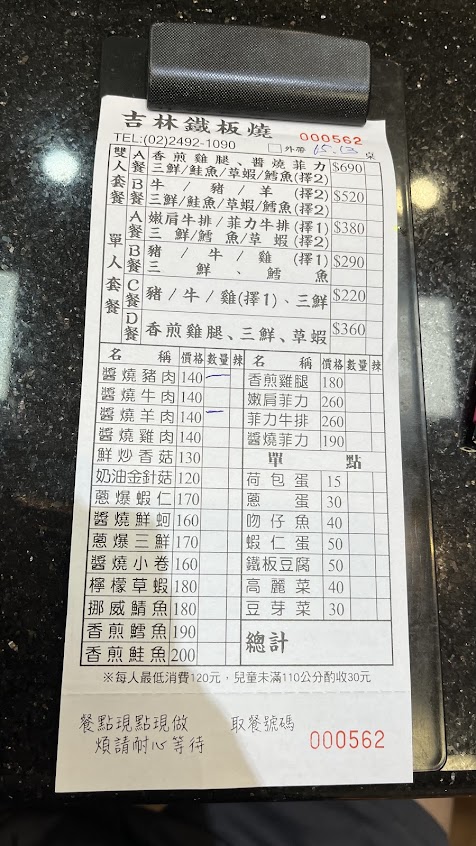 吉林鐵板燒
000562
TEL:(02)2492-1090 □外帶 15.13 桌
雙人套餐
A餐 香煎雞腿、醬燒菲力 三鮮/鮭魚/草蝦/鱈魚(擇2) $690
B餐 牛/豬/羊(擇2) 三鮮/鮭魚/草蝦/鱈魚(擇2) $520
單人套餐
A餐 嫩肩牛排/菲力牛排(擇1) 三鮮/鱈魚/草蝦(擇2) $380
B餐 豬/牛/雞(擇1) 三鮮、鱈魚 $290
C餐 豬/牛/雞(擇1)、三鮮 $220
D餐 香煎雞腿、三鮮、草蝦 $360
名稱 價格 數量 辣 名稱 價格 數量 辣
醬燒豬肉 140 一 香煎雞腿 180
醬燒牛肉 140 嫩肩菲力 260
醬燒羊肉 140 一 菲力牛排 260
醬燒雞肉 140 醬燒菲力 190
鮮炒香菇 130 單點
奶油金針菇 120 荷包蛋 15
蔥爆蝦仁 170 蔥蛋 30
醬燒鮮蚵 160 吻仔魚 40
蔥爆三鮮 170 蝦仁蛋 50
醬燒小卷 160 鐵板豆腐 50
檸檬草蝦 180 高麗菜 40
挪威鯖魚 180 豆芽菜 30
香煎鱈魚 190 總計
香煎鮭魚 200
※每人最低消費120元，兒童未滿110公分酌收30元
餐點現點現做 取餐號碼
煩請耐心等待 000562